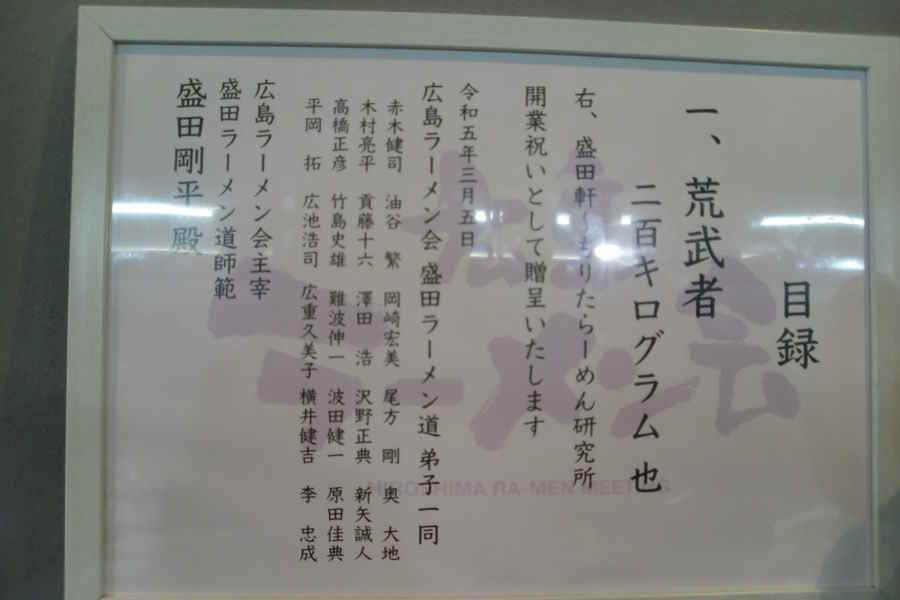 目録
一、荒武者
二百キログラム 也
右、盛田軒〜もりたらーめん研究所
開業祝いとして贈呈いたします
令和五年三月五日
広島ラーメン会 盛田ラーメン道 弟子一同
赤木健司 油谷 繁 岡崎宏美 尾方 剛 奥 大地
木村亮平 貢藤十六 澤田 浩 沢野正典 新矢誠人
高橋正彦 竹島史雄 難波伸一 波田健一 原田佳典
平岡 拓 広池浩司 広重久美子 横井健吉 李 忠成
広島ラーメン会主宰
盛田ラーメン道師範
盛田剛平 殿
HIROSHIMA RA-MEN MEETINGS